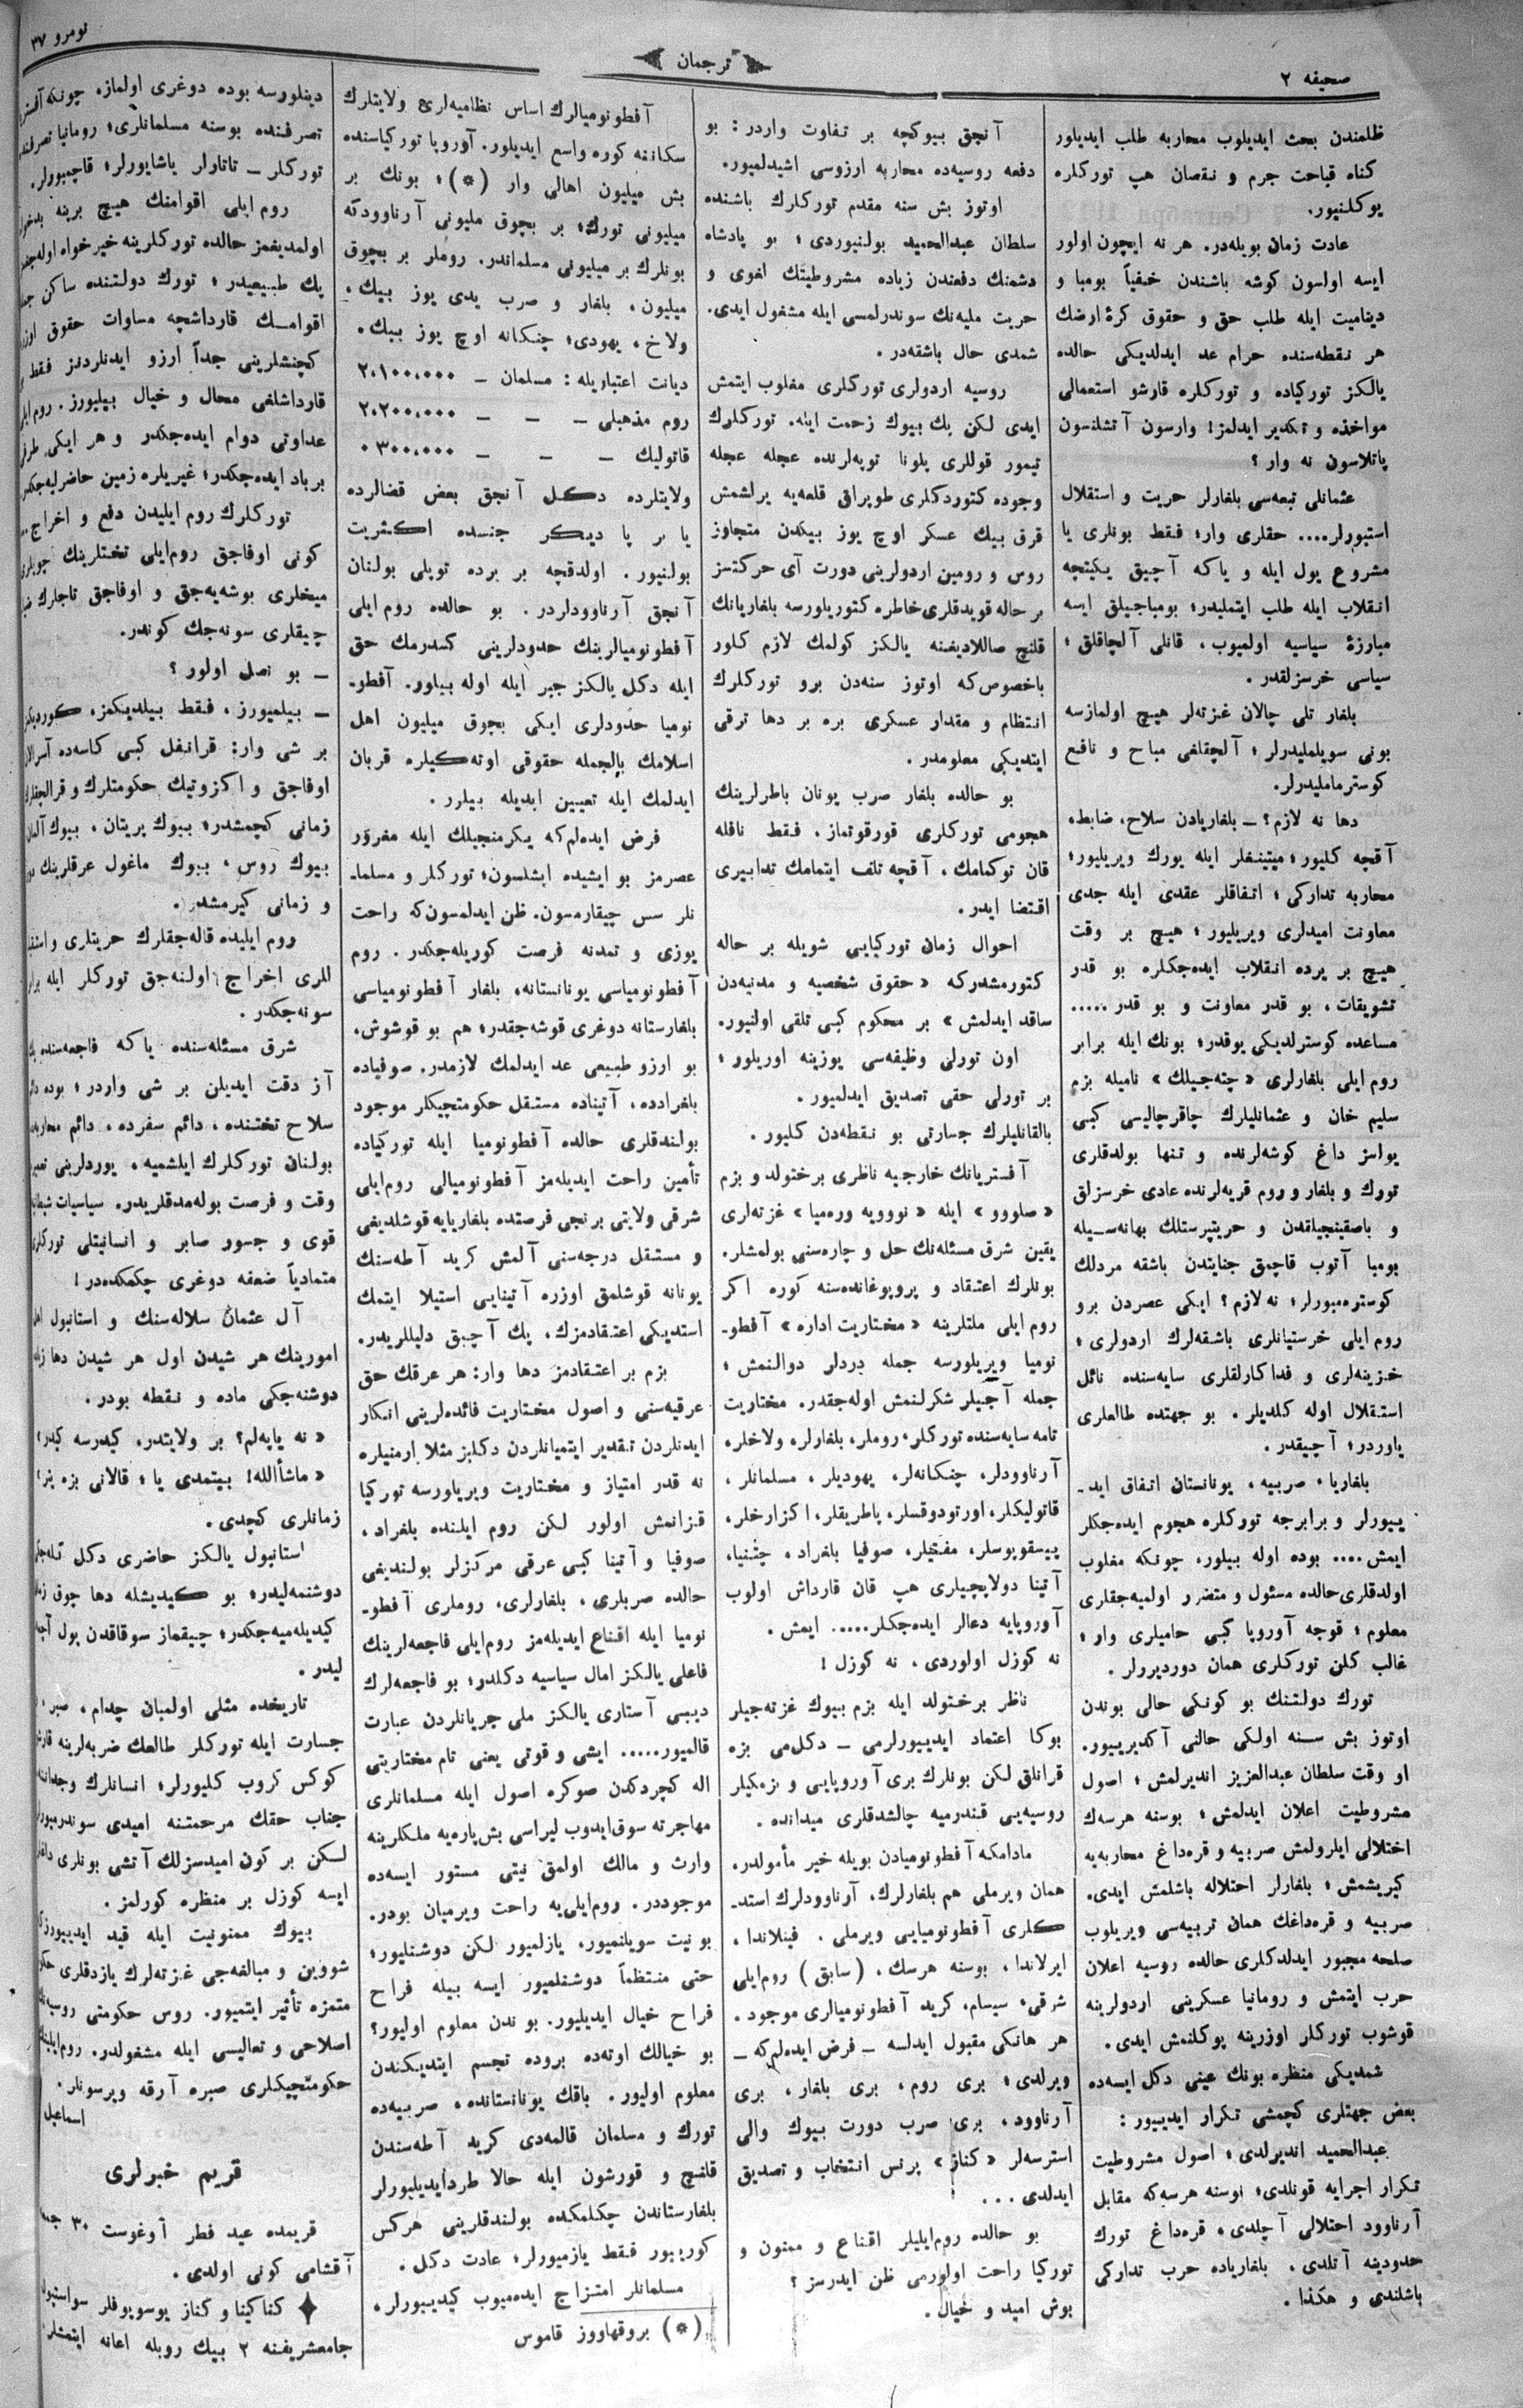 صحیفه ۲
ترجمان
نومرو ۳۷
ظلمندن بحث ایدیلوب محاربه طلب ایدیلور
کناه قباحت جرم و نقصان هپ تورکلره
یوکلنیور.
عادت زمان بویله‌در. هر نه ایچون اولور
ایسه اولسون کوشه باشندن خفیاً بومبا و
دینامیت ایله طلب حق و حقوق کرهٔ ارضك
هر نقطه‌سنده حرام عد ایدلدیکی حالده
یالکز تورکیاده و تورکلره قارشو استعمالی
مواخذه و تکدیر ایدلمز! وارسون آتشلنسون
پاتلاسون نه وار ؟
عثمانلی تبعه‌سی بلغارلر حریت و استقلال
استیورلر.... حقلری وار؛ فقط بونلری یا
مشروع یول ایله و یاکه آچیق یکیتچه
انقلاب ایله طلب ایتملیدر؛ بومباجیلق ایسه
مبارزهٔ سیاسیه اولمیوب، قانلی آلچاقلق ؛
سیاسی خرسزلقدر .
بلغار تلی چالان غزته‌لر هیچ اولمازسه
بونی سویلملیدرلر ؛ آلچقلغی مباح و نافع
کوسترماملیدرلر.
دها نه لازم؟ ــ بلغاریادن سلاح، ضابط،
آقچه کلیور؛ میتینغلر ایله یورك ویریلیور؛
محاربه تدارکی ؛ اتفاقلر عقدی ایله جدی
معاونت امیدلری ویریلیور ؛ هیچ بر وقت
هیچ بر یرده انقلاب ایده‌جکلره بو قدر
تشویقات ، بو قدر معاونت و بو قدر.....
مساعده کوسترلدیکی یوقدر؛ بونك ایله برابر
روم ایلی بلغارلری « چته‌جیلك » نامیله بزم
سلیم خان و عثمانلیلرك چاقرچالیسی کبی
یولسز داغ کوشه‌لرنده و تنها بولدقلری
تورك و بلغار و روم قریه‌لرنده عادی خرسزلق
و باصقینجیلقدن و حریتپرستلك بهانه‌سـیله
بومبا آتوب قاچمق جنایتدن باشقه مردلك
کوستره‌میورلر؛ نه لازم ؟ ایکی عصردن برو
روم ایلی خرستیانلری باشقه‌لرك اردولری ؛
خزینه‌لری و فداکارلقلری سایه‌سنده نائل
استقلال اوله کلدیلر . بو جهتده طالعلری
یاوردر؛ آچیقدر .
بلغاریا ، صربیه ، یونانستان اتفاق ایدـ
ییورلر و برابرجه تورکلره هجوم ایده‌جکلر
ایمش.... بوده اوله بیلور، چونکه مغلوب
اولدقلری حالده مسئول و متضرر اولمیه‌جقلری
معلوم ؛ قوجه آوروپا کبی حامیلری وار ؛
غالب کلن تورکلری همان دوردیررلر .
تورك دولتنك بو کونکی حالی بوندن
اوتوز بش سـنه اولکی حالنی آکدیرییور.
او وقت سلطان عبدالعزیز اندیرلمش ؛ اصول
مشروطیت اعلان ایدلمش ؛ بوسنه هرسك
اختلالی ایلرولمش صربیه و قره‌داغ محاربه‌یه
کیریشمش ؛ بلغارلر احتلاله باشلمش ایدی.
صربیه و قره‌داغك همان تربیه‌سی ویریلوب
صلحه مجبور ایدلدکلری حالده روسیه اعلان
حرب ایتمش و رومانیا عسکرینی اردولرینه
قوشوب تورکلر اوزرینه یوکلنمش ایدی .
شمدیکی منظره بونك عینی دکل ایسه‌ده
بعض جهتلری کچمشی تکرار ایدییور :
عبدالحمید اندیرلدی؛ اصول مشروطیت
تکرار اجرایه قونلدی؛ بوسنه هرسه‌که مقابل
آرناوود احتلالی آچلدی ، قره‌داغ تورك
حدودینه آتلدی . بلغاریاده حرب تدارکی
باشلندی و هکذا .
آنجق بیوکچه بر تفاوت واردر : بو
دفعه روسیه‌ده محاربه ارزوسی اشیدلمیور.
اوتوز بش سنه مقدم تورکلرك باشنده
سلطان عبدالحمید بولنیوردی ؛ بو پادشاه
دشمنك دفعندن زیاده مشروطیتك لغوی و
حریت ملیه‌نك سوندرلمسی ایله مشغول ایدی.
شمدی حال باشقه‌در .
روسیه اردولری تورکلری مغلوب ایتمش
ایدی لکن پك بیوك زحمت ایله. تورکلرك
تیمور قوللری پلونا توپه‌لرنده عجله عجله
وجوده کتوردکلری طوپراق قلعه‌یه یرلشمش
قرق بیك عسکر اوچ یوز بیکدن متجاوز
روس و رومین اردولرینی دورت آی حرکتسز
بر حاله قویدقلری خاطره کتوریلورسه بلغاریانك
قلنچ صاللادیغنه یالکز کولمك لازم کلور
باخصوص‌که اوتوز سنه‌دن برو تورکلرك
انتظام و مقدار عسکری بره بر دها ترقی
ایتدیکی معلومدر .
بو حالده بلغار صرب یونان باطرلرینك
هجومی تورکلری قورقوتماز . فقط نافله
قان توکمامك ، آقچه تلف ایتمامك تدابیری
اقتضا ایدر.
احوال زمان تورکیایی شویله بر حاله
کتورمشدرکه « حقوق شخصیه و مدنیه‌دن
ساقد ایدلمش » بر محکوم کبی تلقی اولنیور.
اون تورلی وظیفه‌سی یوزینه اوریلور ؛
بر تورلی حقی تصدیق ایدلمیور .
بالقانلیلرك جسارتی بو نقطه‌دن کلیور .
آفستریانك خارجیه ناظری برختولد و بزم
« صلووو » ایله « نوویه وره‌میا » غزته‌لری
یقین شرق مسئله‌نك حل و چاره‌سنی بولمشلر.
بونلرك اعتقاد و پروپوغانده‌سنه کوره اکر
روم ایلی ملتلرینه « مختاریت اداره » آفطوـ
نومیا ویریلورسه جمله دردلر دوالنمش ؛
جمله آجیلر شکرلنمش اوله‌جقدر. مختاریت
تامه سایه‌سنده تورکلر، روملر، بلغارلر، ولاخلر،
آرناوودلر، چنکانه‌لر، یهودیلر ، مسلمانلر ،
قاتولیکلر، اورتودوقسلر، پاطریقلر، اکزارخلر،
پیسقوپوسلر، مفتیلر، صوفیا بلغراد ، چتنیا،
آتینا دولابچیلری هپ قان قارداش اولوب
آوروپایه دعالر ایده‌جکلر..... ایمش .
نه کوزل اولوردی ، نه کوزل !
ناظر برختولد ایله بزم بیوك غزته‌جیلر
بوکا اعتماد ایدییورلرمی ــ دکل‌می بزه
قرانلق لکن بونلرك بری آوروپایی و بزمکیلر
روسیه‌یی قندرمیه چالشدقلری میدانده .
مادامکه آفطونومیادن بویله خیر مأمولدر،
همان ویرملی هم بلغارلرك، آرناوودلرك استدـ
کلری آفطونومیایی ویرملی . فینلاندا ،
ایرلاندا ، بوسنه هرسك ، (سابق) روم‌ایلی
شرقی، سیسام، کرید آفطونومیالری موجود .
هر هانکی مقبول ایدلسه ــ فرض ایده‌لم‌که ــ
ویرلدی؛ بری روم ، بری بلغار ، بری
آرناوود ، بری صرب دورت بیوك والی
استرسه‌لر « کناز » پرنس انتخاب و تصدیق
ایدلدی...
بو حالده روم‌ایلیلر اقناع و ممنون و
تورکیا راحت اولورمی ظن ایدرسز ؟
بوش امید و خیال.
آفطونومیالرك اساس نظامیه‌لری ولایتلرك
سکاننه کوره واسع ایدیلور. آوروپا تورکیاسنده
بش میلیون اهالی وار (*)؛ بونك بر
میلیونی تورك؛ بر بچوق ملیونی آرناوودکه
بونلرك بر میلیونی مسلماندر. روملر بر بچوق
میلیون ، بلغار و صرب یدی یوز بیك ،
ولاخ ، یهودی؛ چنکانه اوچ یوز بیك .
دیانت اعتباریله : مسلمان ــ ۲،۱۰۰،۰۰۰
روم مذهبلی ــ ــ ــ ۲،۲۰۰،۰۰۰
قاتولیك ــ ــ ــ ۰۳۰۰،۰۰۰
ولایتلرده دکل آنجق بعض قضالرده
یا بر یا دیکر جنسده اکثریت
بولنیور . اولدقچه بر یرده توپلی بولنان
آنجق آرناوودلردر. بو حالده روم ایلی
آفطونومیالرینك حدودلرینی کسدرمك حق
ایله دکل یالکز جبر ایله اوله بیلور. آفطوـ
نومیا حدودلری ایکی بچوق میلیون اهل
اسلامك بالجمله حقوقی اوته‌کیلره قربان
ایدلمك ایله تعیین ایدیله بیلرر .
فرض ایده‌لم‌که یکرمنجیلك ایله مغرور
عصرمز بو ایشیده ایشلسون؛ تورکلر و مسلماـ
نلر سس چیقارمسون. ظن ایدلمسون‌که راحت
یوزی و تمدنه فرصت کوریله‌جکدر . روم
آفطونومیاسی یونانستانه، بلغار آفطونومیاسی
بلغارستانه دوغری قوشه‌جقدر؛ هم بو قوشوش،
بو ارزو طبیعی عد ایدلمك لازمدر. صوفیاده
بلغرادده ، آتیناده مستقل حکومتچیکلر موجود
بولندقلری حالده آفطونومیا ایله تورکیاده
تأمین راحت ایدیله‌مز آفطونومیالی روم‌ایلی
شرقی ولایتی برنجی فرصتده بلغاریایه قوشلدیغی
و مستقل درجه‌سنی آلمش کرید آطه‌سنك
یونانه قوشلمق اوزره آتینایی استیلا ایتمك
استدیکی اعتقادمزك، پك آچیق دلیللریدر.
بزم بر اعتقادمز دها وار: هر عرقك حق
عرقیه‌سنی و اصول مختاریت فائده‌لرینی انکار
ایدنلردن تقدیر ایتمیانلردن دکلبز مثلا ارمنیلره
نه قدر امتیاز و مختاریت ویریلورسه تورکیا
قزانمش اولور لکن روم ایلنده بلغراد،
صوفیا و آتینا کبی عرقی مرکزلر بولندیغی
حالده صربلری ، بلغارلری، روملری آفطوـ
نومیا ایله اقناع ایدیله‌مز روم‌ایلی فاجعه‌لرینك
فاعلی یالکز امال سیاسیه دکلدر؛ بو فاجعه‌لرك
دیبی آستاری یالکز ملی جریانلردن عبارت
قالمیور..... ایشی و قوتی یعنی تام مختاریتی
اله کچردکدن صوکره اصول ایله مسلمانلری
مهاجرته سوق‌ایدوب لیراسی بش پاره‌یه ملکلرینه
وارث و مالك اولمق نیتی مستور ایسه‌ده
موجوددر. روم‌ایلی‌یه راحت ویرمیان بودر.
بو نیت سویلنمیور، یازلمیور لکن دوشنلیور؛
حتی منتظماً دوشنلمیور ایسه بیله فراح
فراح خیال ایدیلیور. بوندن معلوم اولیور؟
بو خیالك اوته‌ده بروده تجسم ایتدیکندن
معلوم اولیور. باقك یونانستانده ، صربیه‌ده
تورك و مسلمان قالمه‌دی کرید آطه‌سندن
قلنچ و قورشون ایله حالا طردایدیلیورلر
بلغارستاندن چکلمکده بولندقلرینی هرکس
کورییور فقط یازمیورلر؛ عادت دکل .
مسلمانلر امتزاج ایده‌میوب کیدییورلر،
(*) بروقهاووز قاموس
دینلورسه بوده دوغری اولماز، چونکه
تصرفنده بوسنه مسلمانلری؛ رومانیا
تورکلر ــ تاتارلر یاشایورلر؛ قاچمیورلر.
روم ایلی اقوامنك هیچ برینه
اولمدیغمز حالده تورکلرینه خیرخواه
پك طبیعیدر ؛ تورك دولتنده ساکن
اقوامك قارداشچه مساوات حقوق
کچنشلرینی جداً ارزو ایدنلردنز فقط
قارداشلغی محال و خیال بیلیورز. روم
عداوتی دوام ایده‌جکدر و هر ایکی طرفی
برباد ایده‌جکدر؛ غیریلره زمین حاضرلیه‌جکدر
تورکلرك روم ایلیدن دفع و اخراج
کونی اوفاجق روم‌ایلی تختلرینك
میخلری بوشه‌یه‌جق و اوفاجق تاجلرك
چیقلری سونه‌جك کوندر.
ــ بو نصل اولور ؟
ــ بیلمیورز، فقط بیلدیکمز،
بر شی وار: قرانفل کبی کاسه‌ده
اوفاجق و اکزوتیك حکومتلرك و
زمانی کچمشدر؛ بیوك بریتان ، بیوك آلمان
بیوك روس ، بیوك ماغول عرقلرینك
و زمانی کیرمشدر.
روم ایلیده قاله‌جقلرك حریتلری و
اللری اخراج اولنه‌جق تورکلر ایله
سونه‌جکدر .
شرق مسئله‌سنده یاکه فاجعه‌سنده
آز دقت ایدیلن بر شی واردر ؛ بوده
سلاح تختنده ، دائم سفرده ، دائم
بولنان تورکلرك ایلشمیه ، یوردلرینی
وقت و فرصت بوله‌مدقلریدر. سیاسیات
قوی و جسور صابر و انسانیتلی
متمادیاً ضعفه دوغری چکمکده‌در !
آل عثمان سلاله‌سنك و استانبول
امورینك هر شیدن اول هر شیدن دها
دوشنه‌جکی ماده و نقطه بودر .
« نه یاپه‌لم؟ بر ولایتدر، کیدرسه کیدر؛
« ماشأالله! بیتمدی یا ؛ قالانی بزه یتر؛
زمانلری کچدی .
استانبول یالکز حاضری دکل
دوشنمه‌لیدر؛ بو کیدیشله دها چوق
کیدیله‌میه‌جکدر؛ چیقماز سوقاقدن یول
لیدر .
تاریخده مثلی اولمیان چدام ، صبر ،
جسارت ایله تورکلر طالعك ضربه‌لرینه
کوکس کروب کلیورلر؛ انسانلرك
جناب حقك مرحمتنه امیدی
لکن بر کون امیدسزلك آتشی بونلری
ایسه کوزل بر منظره کورلمز.
بیوك ممنونیت ایله قید ایدییورز
شووین و مبالغه‌جی غزته‌لرك یازدقلری
متمزه تأثیر ایتمیور. روس حکومتی
اصلاحی و تعالیسی ایله مشغولدر.
حکومتچیکلری صبره آرقه ویرسونلر .
اسماعیل
قریم خبرلری
قریمده عید فطر آوغوست ۳۰
آقشامی کونی اولدی .
کناکینا و کناز یوسوپوفلر
جامعشریفنه ۲ بیك روبله اعانه ایتمشلر